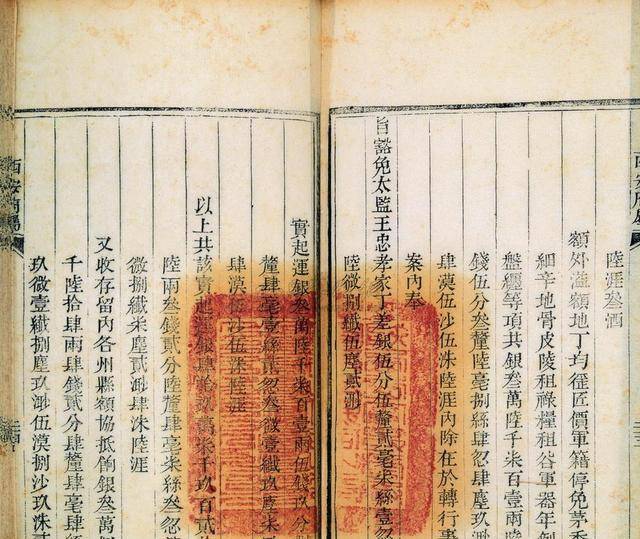 陸涯叁洒
額外溢額地丁均徭匠價軍籍停免茅
細辛地骨皮陵祖祿糧祖谷軍器年
盤纏等項共銀叁萬陸千柒百壹兩陸
錢伍分叁釐陸毫捌絲肆忽肆塵玖
肆漠伍沙伍洙陸涯內除在於轉行事
案內奉
旨豁免太監王忠孝家丁差銀伍分伍釐貳毫柒絲叁忽
陸微捌纖伍塵貳渺
實起運銀叁萬陸千柒百壹兩伍錢玖分
釐肆毫壹絲貳忽叁微壹纖玖塵柒
肆漠伍沙伍洙陸涯
以上共該實起運銀肆萬玖千玖百貳拾
陸兩叁錢貳分陸釐肆毫柒絲叁忽
微捌纖柒塵貳渺肆洙陸涯
又收存留內各州縣額協抵餉銀叁萬
千陸拾肆兩肆錢貳分肆釐肆毫肆
玖微壹纖捌塵玖渺伍漠捌沙玖洙
西安府